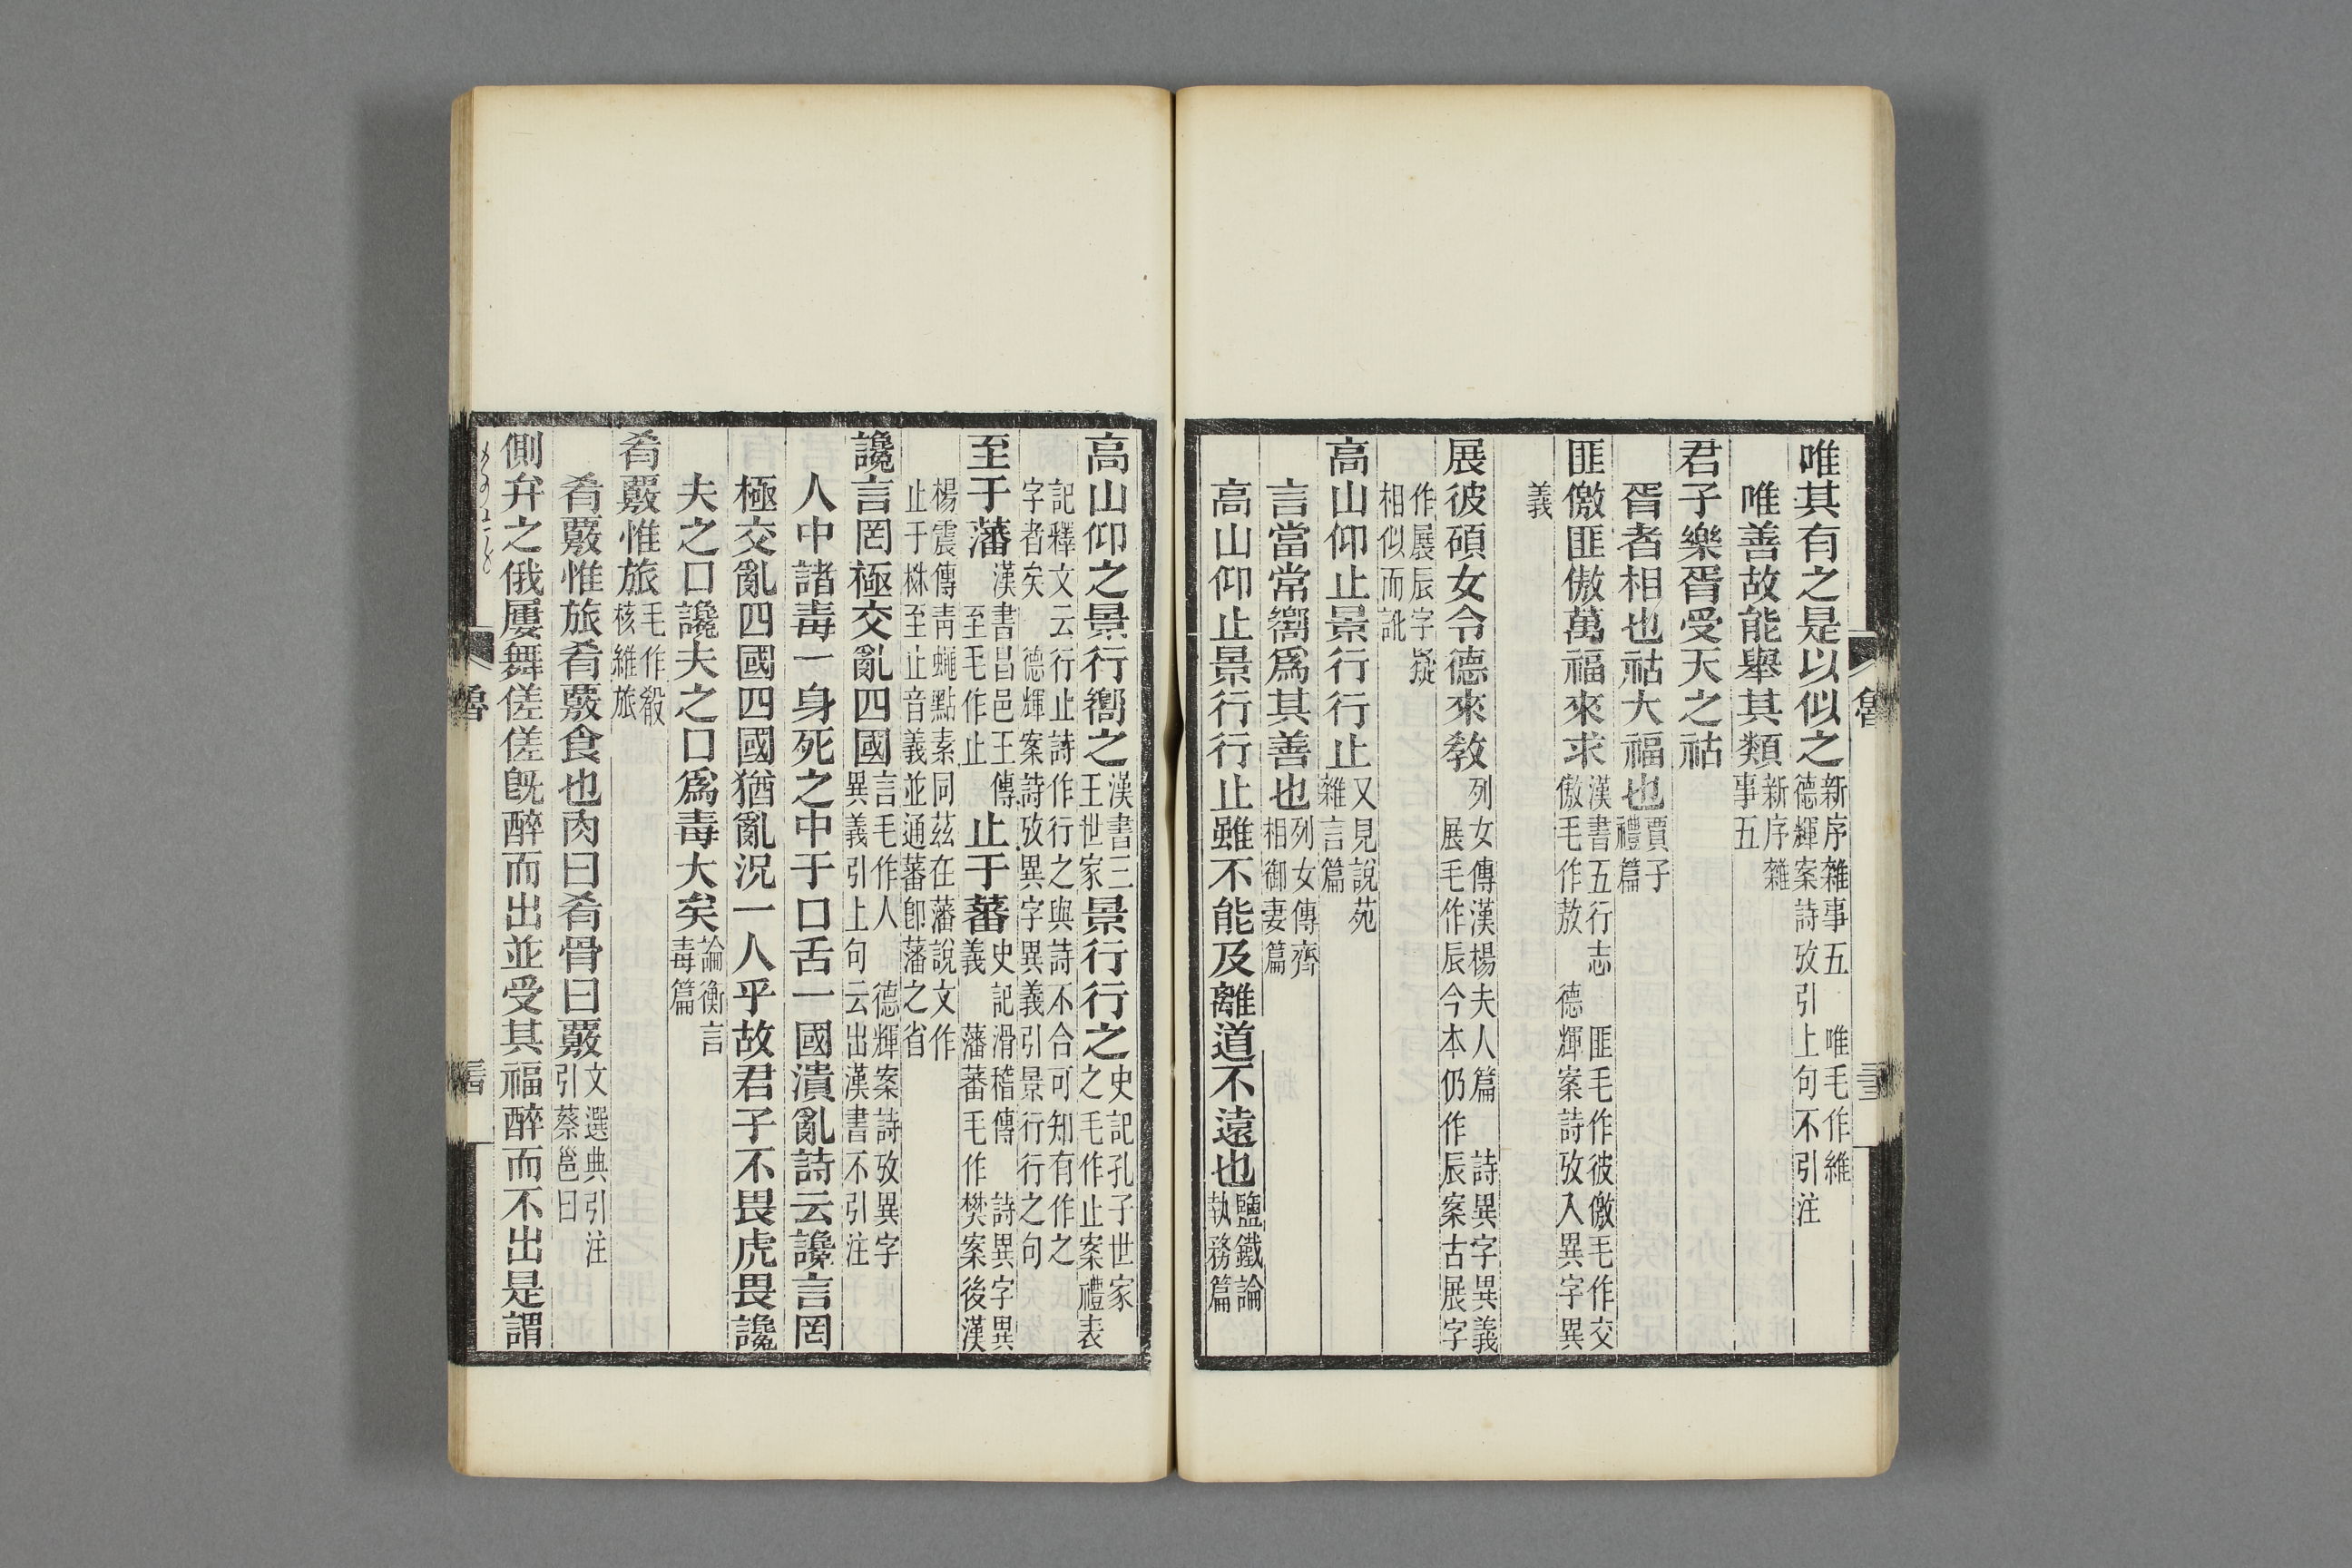 唯其有之是以似之新序雜事五　唯毛作維德輝案詩攷引上句不引注
唯善故能舉其類新序雜事五
君子樂胥受天之祜
胥者相也祜大福也賈子禮篇
匪儌匪傲萬福來求漢書五行志　匪毛作彼儌毛作交傲毛作敖　德輝案詩攷入異字異
義
展彼碩女令德來教列女傳漢楊夫人篇　詩異字異義展毛作辰今本仍作辰案古展字
作㞡辰字疑相似而訛
高山仰止景行行止又見說苑雜言篇
言當常嚮爲其善也列女傳齊相御妻篇
高山仰止景行行止雖不能及離道不遠也鹽鐵論執務篇
魯
高山仰之景行嚮之漢書三王世家景行行之史記孔子世家之毛作止案禮表
記釋文云行止詩作行之與詩不合可知有作之字者矣　德輝案詩攷異字異義引景行行之句
至于藩漢書昌邑王傳至毛作止止于蕃史記滑稽傳　詩異字異義　藩蕃毛作樊案後漢
楊震傳青蠅點素同茲在藩說文作止于棥至止音義並通蕃卽藩之省
讒言罔極交亂四國言毛作人　德輝案詩攷異字異義引上句云出漢書不引注
人中諸毒一身死之中于口舌一國潰亂詩云讒言罔
極交亂四國四國猶亂況一人乎故君子不畏虎畏讒
夫之口讒夫之口爲毒大矣論衡言毒篇
肴覈惟旅毛作殽核維旅
肴覈惟旅肴覈食也肉曰肴骨曰覈文選典引注引蔡邕曰
側弁之俄屢舞傞傞旣醉而出並受其福醉而不出是謂
魯